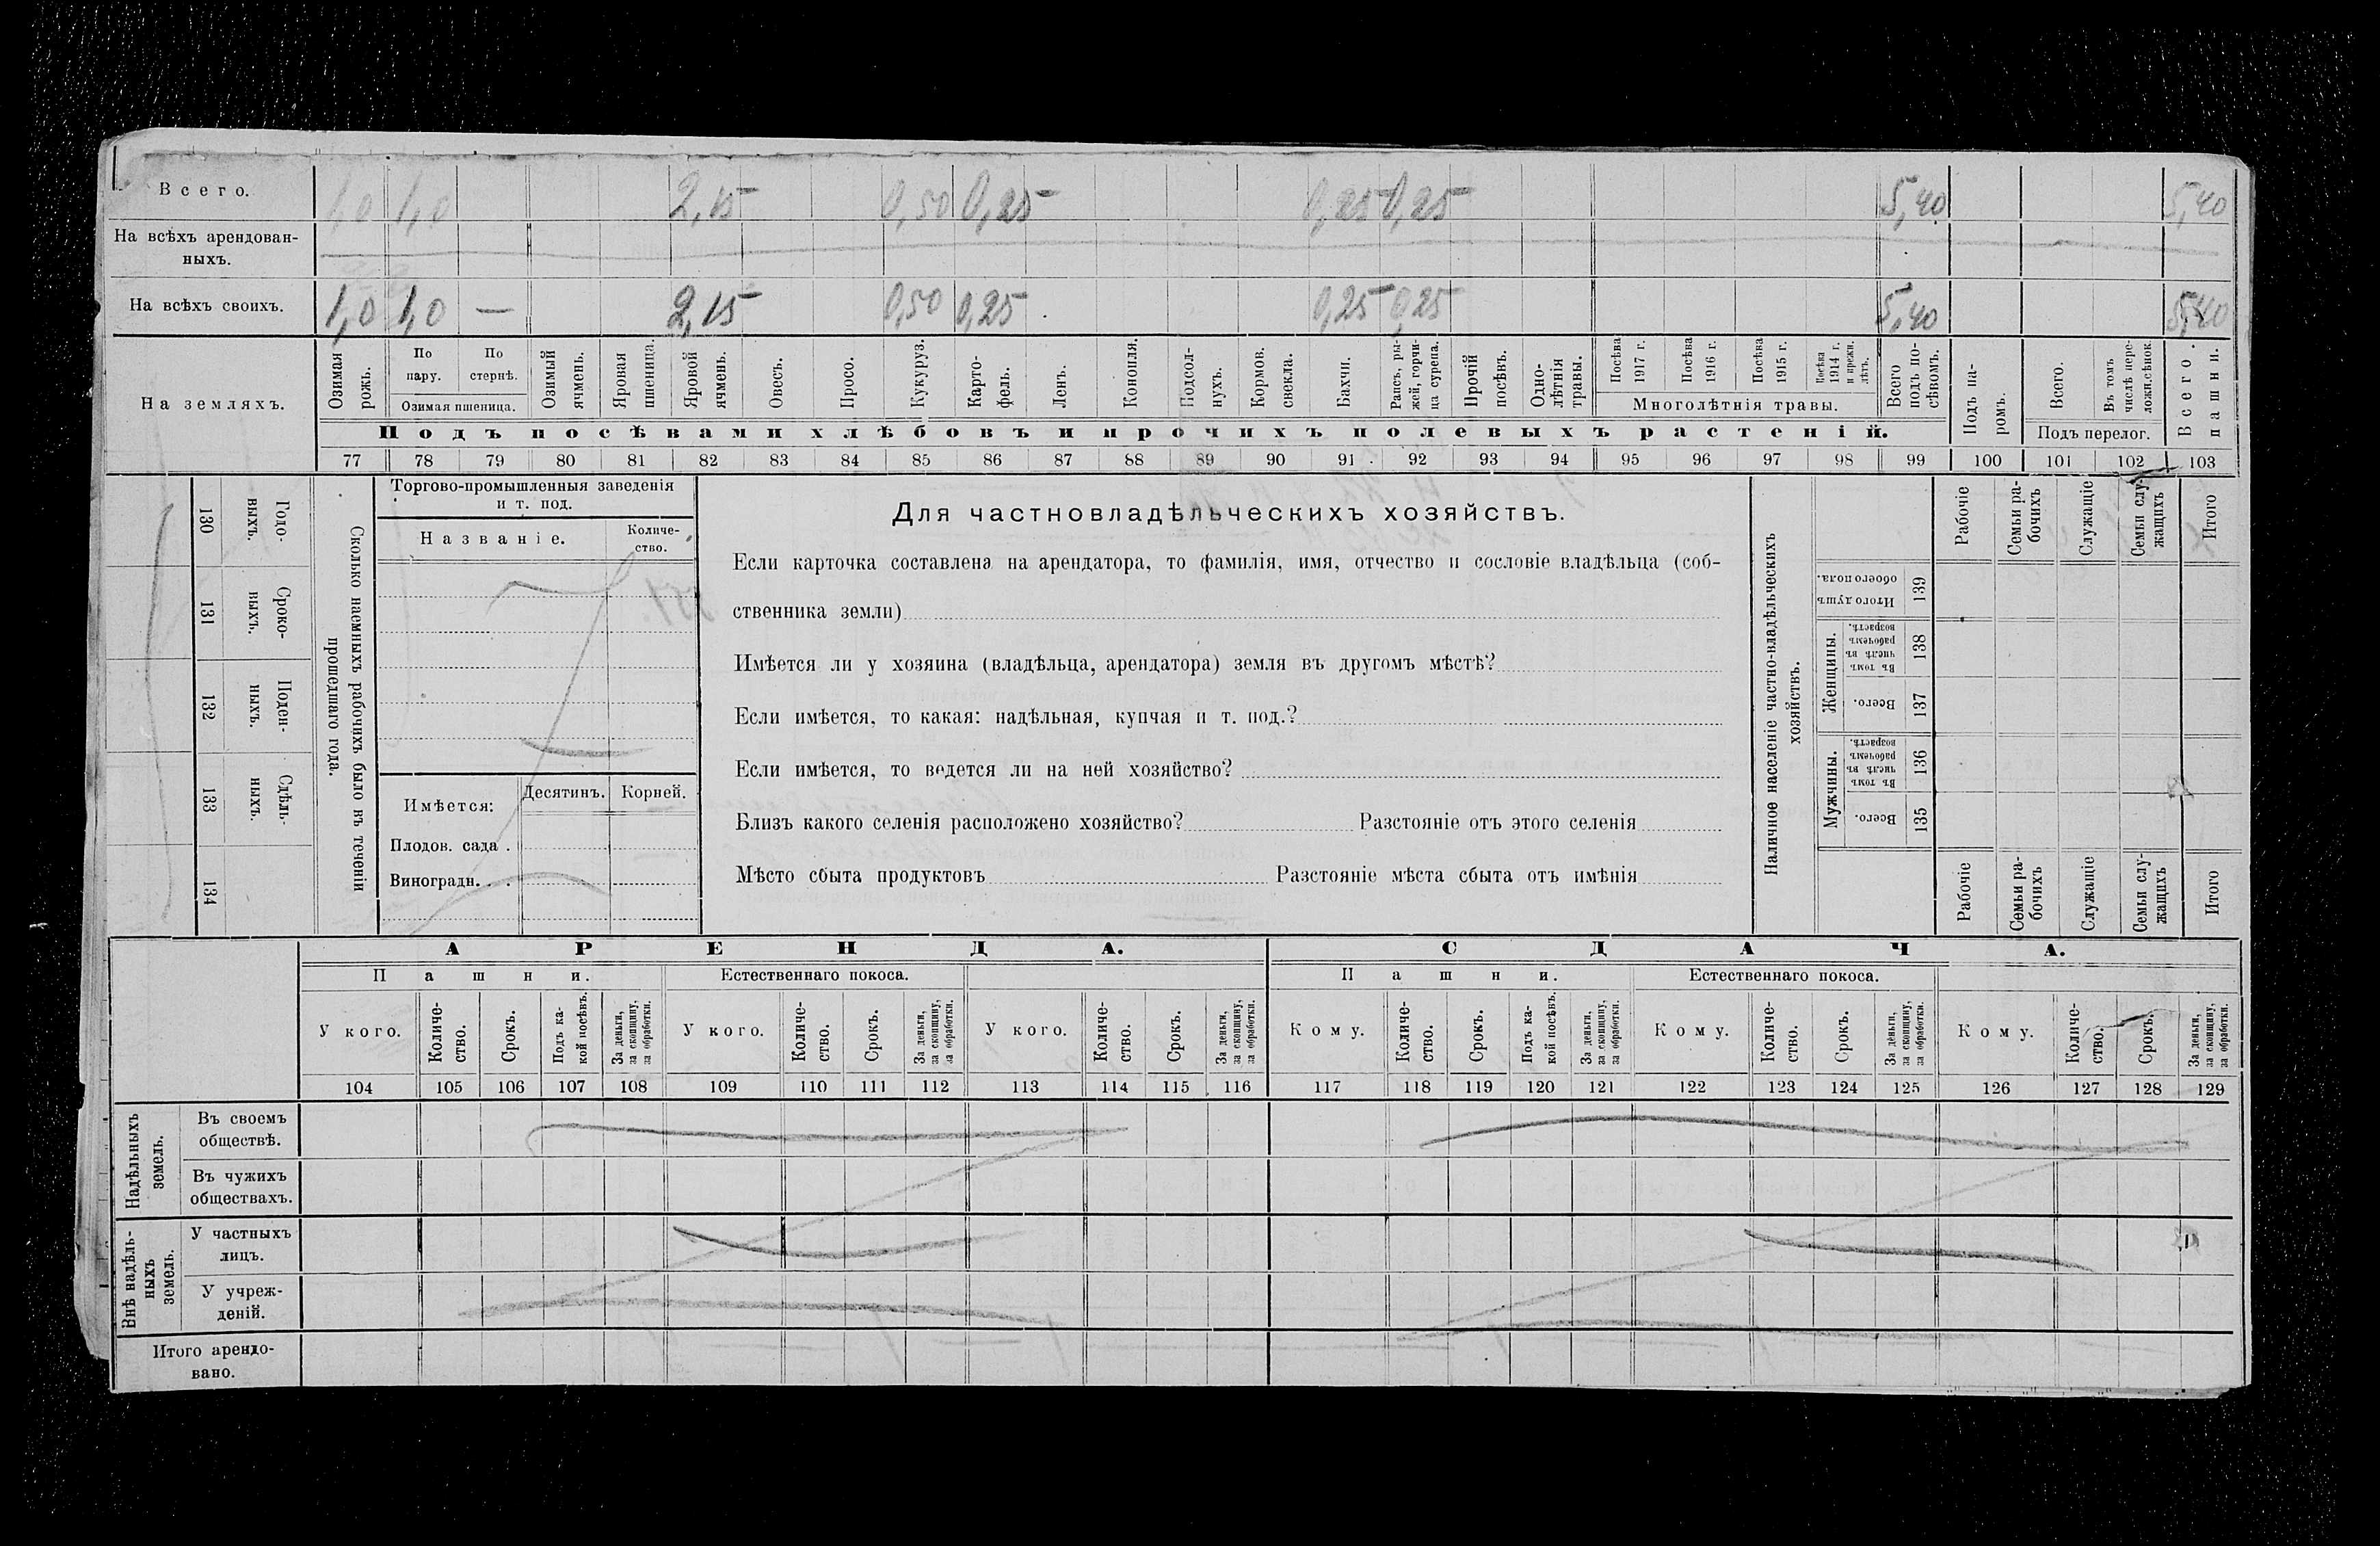 Всего. 1,0 1,0 2,15 0,50 0,25 0,25 0,25 5,40 5,40
На всѣхъ арендован-
ныхъ.
На всѣхъ своихъ. 1,0 1,0 — 2,15 0,50 0,25 0,25 0,25 5,40 5,40
На земляхъ.
Озимая рожь.
По пару.
По стернѣ.
Озимая пшеница.
Озимый ячмень.
Яровая пшеница.
Яровой ячмень.
Овесъ.
Просо.
Кукуруз.
Карто-
фель.
Ленъ.
Конопля.
Подсол-
нухъ.
Кормов. свекла.
Бахчи.
Рапсъ, ры-
жей, горчи-
ца сурепа.
Прочій посѣвъ.
Одно-
лѣтнія травы.
Посѣва 1917 г.
Посѣва 1916 г.
Посѣва 1915 г.
Посѣва 1914 г. и прежн. лѣтъ.
Многолѣтнія травы.
Всего подъ по-
сѣвомъ.
Подъ па-
ромъ.
Всего.
Въ томъ числѣ пере-
ложн.сѣнок.
Подъ перелог.
Всего пашни.
Подъ посѣвами хлѣбовъ и прочихъ полевыхъ растеній.
77 78 79 80 81 82 83 84 85 86 87 88 89 90 91 92 93 94 95 96 97 98 99 100 101 102 103
130 Годо-
ныхъ.
131 Сроко-
ныхъ.
132 Поден-
ныхъ.
133 Сдѣль-
ныхъ.
134
Сколько наемныхъ рабочихъ было въ теченіи
прошедшаго года.
Торгово-промышленныя заведенія
и т. под.
Названіе. Количе-
ство.
Имѣется: Десятинъ. Корней.
Плодов. сада .
Виноградн. . .
Для частновладѣльческихъ хозяйствъ.
Если карточка составлена на арендатора, то фамилія, имя, отчество и сословіе владѣльца (соб-
ственника земли)
Имѣется ли у хозяина (владѣльца, арендатора) земля въ другомъ мѣстѣ?
Если имѣется, то какая: надѣльная, купчая и т. под.?
Если имѣется, то ведется ли на ней хозяйство?
Близъ какого селенія расположено хозяйство? Разстояніе отъ этого селенія
Мѣсто сбыта продуктовъ Разстояніе мѣста сбыта отъ имѣнія
Наличное населеніе частно-владѣльческихъ
хозяйствъ.
Рабочіе
Семьи ра-
бочихъ
Служащіе
Семьи слу-
жащихъ
Итого
Итого душъ обоего пола. 139
Женщины.
Въ томъ числѣ въ рабочемъ возрастѣ. 138
Всего. 137
Мужчины.
Въ томъ числѣ въ рабочемъ возрастѣ. 136
Всего. 135
Рабочіе
Семьи ра-
бочихъ
Служащіе
Семьи слу-
жащихъ
Итого
АРЕНДА. СДАЧА.
Пашни. Естественнаго покоса. Пашни. Естественнаго покоса.
У кого.
Количе-
ство.
Срокъ.
Подъ ка-
кой посѣвъ.
За деньги,
за скопщину,
за обработки.
У кого.
Количе-
ство.
Срокъ.
За деньги,
за скопщину,
за обработки.
У кого.
Количе-
ство.
Срокъ.
За деньги,
за скопщину,
за обработки.
Кому.
Количе-
ство.
Срокъ.
Подъ ка-
кой посѣвъ.
За деньги,
за скопщину,
за обработки.
Кому.
Количе-
ство.
Срокъ.
За деньги,
за скопщину,
за обработки.
Кому.
Количе-
ство.
Срокъ.
За деньги,
за скопщину,
за обработки.
104 105 106 107 108 109 110 111 112 113 114 115 116 117 118 119 120 121 122 123 124 125 126 127 128 129
Надѣльныхъ
земель.
Въ своемъ
обществѣ.
Въ чужихъ
обществахъ.
Внѣ надѣль-
ныхъ
земель.
У частныхъ
лицъ.
У учреж-
деній.
Итого арендо-
вано.